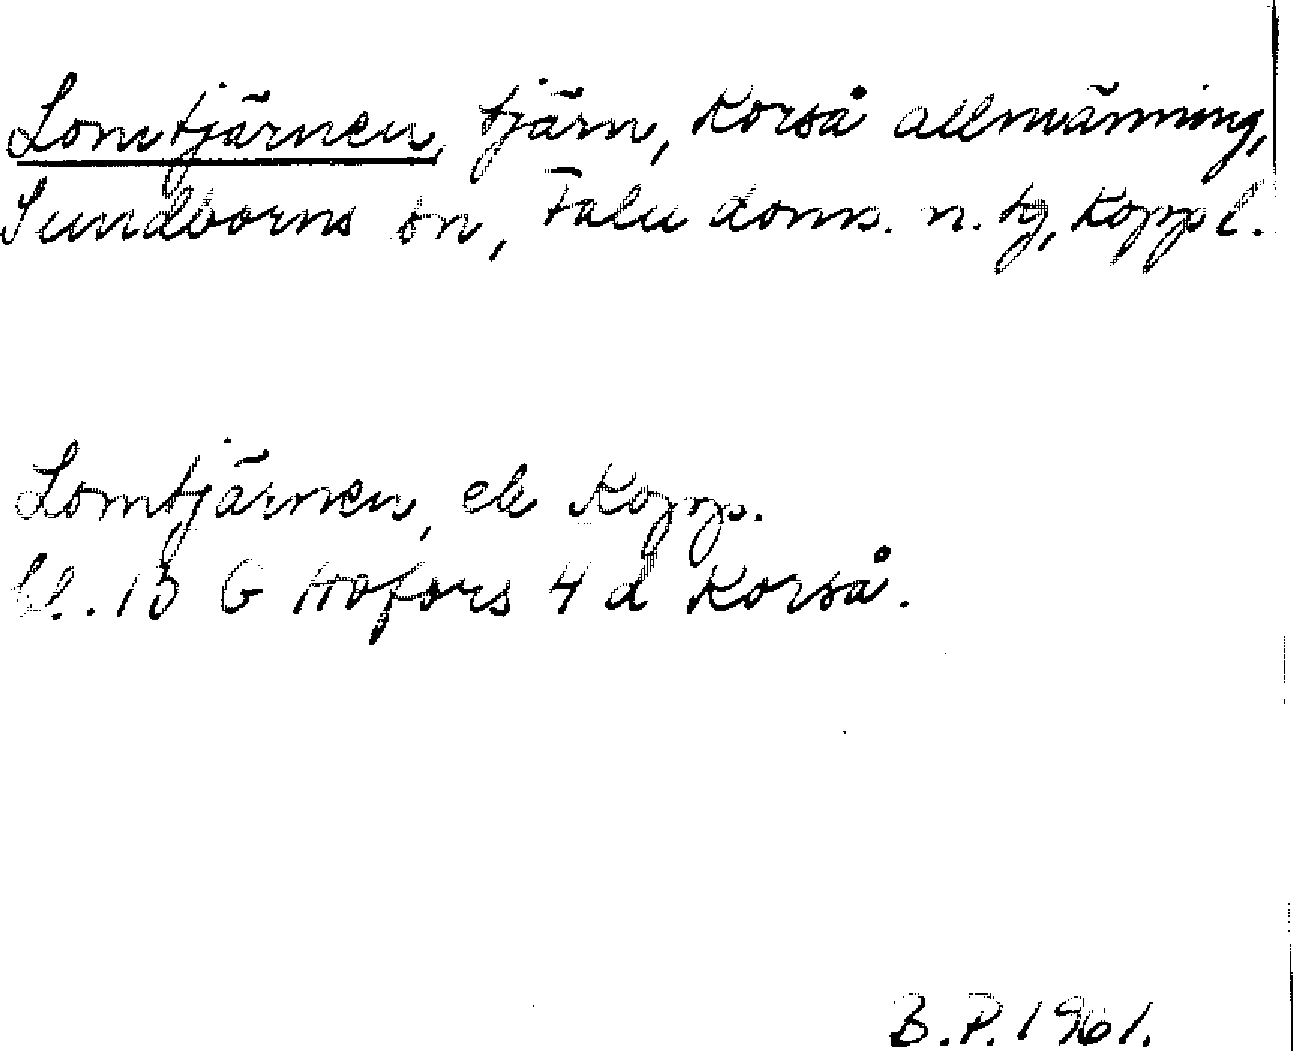 Lomtjärnen, tjärn, Korså allmänning,
Sundborns sn, Falu doms. n. tg, Kopp l.
Lomtjärnen, ek Kopp.
bl. 13 G Hofors 4 d Korså.
B.P. 1961.